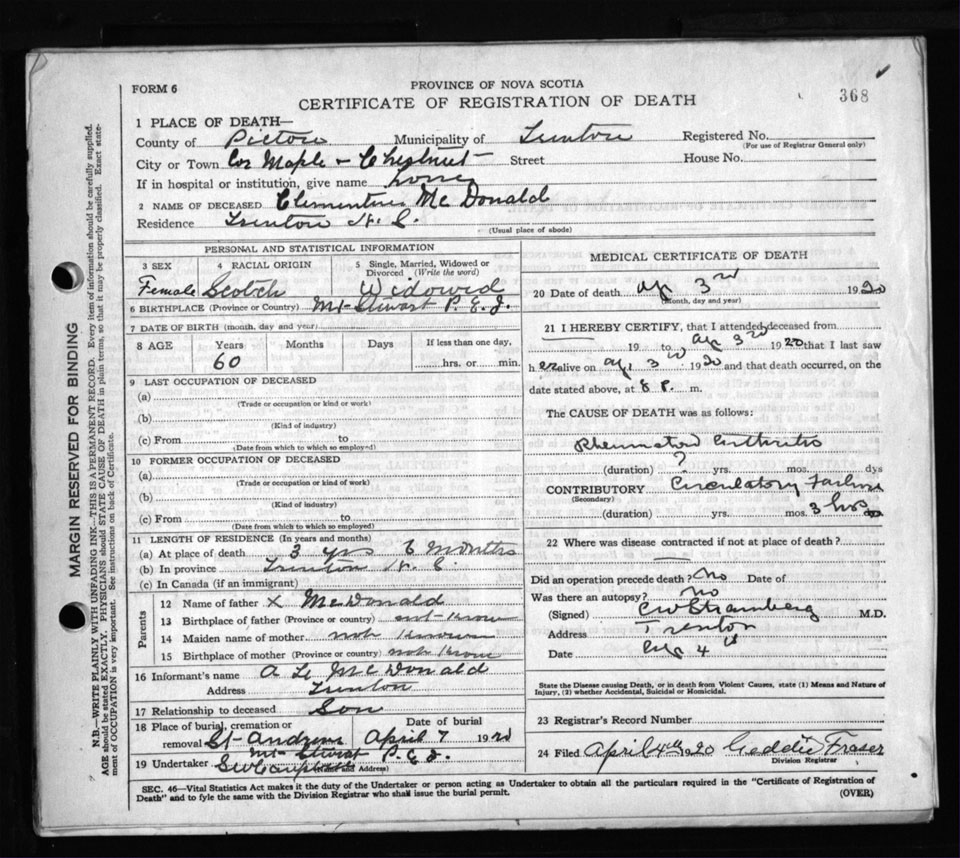 FORM 6
PROVINCE OF NOVA SCOTIA
CERTIFICATE OF REGISTRATION OF DEATH
368
1 PLACE OF DEATH—
County of Pictou Municipality of Trenton Registered No.
(For use of Registrar General only)
City or Town Cor Maple & Chestnut Street House No.
If in hospital or institution, give name home
2 NAME OF DECEASED Clementine McDonald
Residence Trenton N. S.
(Usual place of abode)
PERSONAL AND STATISTICAL INFORMATION
3 SEX 4 RACIAL ORIGIN 5 Single, Married, Widowed or Divorced (Write the word)
Female Scotch Widowed
6 BIRTHPLACE (Province or Country) Mt Stewart P. E. I.
7 DATE OF BIRTH (month, day and year)
8 AGE Years Months Days If less than one day,
60 hrs. or min.
9 LAST OCCUPATION OF DECEASED
(a)
(Trade or occupation or kind of work)
(b)
(Kind of industry)
(c) From to
(Date from which to which so employed)
10 FORMER OCCUPATION OF DECEASED
(a)
(Trade or occupation or kind of work)
(b)
(Kind of industry)
(c) From to
(Date from which to which so employed)
11 LENGTH OF RESIDENCE (In years and months)
(a) At place of death 3 yrs 6 months
(b) In province Trenton N. S.
(c) In Canada (if an immigrant)
Parents
12 Name of father X McDonald
13 Birthplace of father (Province or country) not know
14 Maiden name of mother not known
15 Birthplace of mother (Province or country) not know
16 Informant's name A L McDonald
Address Trenton
17 Relationship to deceased Son
18 Place of burial, cremation or removal Date of burial
St Andrews April 7 1920
Mt Stewart P. E. I.
19 Undertaker
(Name and Address)
MEDICAL CERTIFICATE OF DEATH
20 Date of death Ap 3rd 1920
(Month, day and year)
21 I HEREBY CERTIFY, that I attended deceased from
19 to Ap 3rd 1920 that I last saw
her alive on Ap 3rd 1920 and that death occurred, on the
date stated above, at 8 P. m.
The CAUSE OF DEATH was as follows:
Rheumatoid Arthritis
(duration) ? yrs. mos. dys
CONTRIBUTORY Circulatory Failure
(Secondary)
(duration) yrs. mos. 3 hrs
22 Where was disease contracted if not at place of death?
—
Did an operation precede death? No Date of
Was there an autopsy? No
(Signed) M.D.
Address Trenton
Date Ap 4th
State the Disease causing Death, or in death from Violent Causes, state (1) Means and Nature of Injury, (2) whether Accidental, Suicidal or Homicidal.
23 Registrar's Record Number
24 Filed April 4th 1920 Geddie Fraser
Division Registrar
SEC. 46—Vital Statistics Act makes it the duty of the Undertaker or person acting as Undertaker to obtain all the particulars required in the "Certificate of Registration of
Death" and to fyle the same with the Division Registrar who shall issue the burial permit.
(OVER)
MARGIN RESERVED FOR BINDING
N.B.—WRITE PLAINLY WITH UNFADING INK—THIS IS A PERMANENT RECORD. Every item of information should be carefully supplied.
AGE should be stated EXACTLY. PHYSICIANS should STATE CAUSE OF DEATH in plain terms, so that it may be properly classified. Exact statement of OCCUPATION is very important. See instructions on back of Certificate.